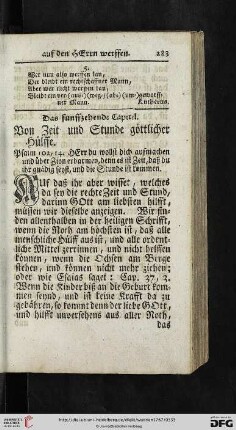 auf den HErrn werffen. 283
5.
Wer nun also werffen kan,
Der bleibt ein rechtschaffner Mann,
Aber wer nicht werffen kan,
Bleibt ein ver-(aus-)(weg-)(ab-)(um-)geworff-
ner Mann. Lutherus.
Das funffzehende Capitel.
Von Zeit und Stunde göttlicher
Hülffe.
Psalm 102, 14. HErr du wollst dich aufmachen
und über Zion erbarmen, denn es ist Zeit, daß du
ihr gnädig seyst, und die Stunde ist kommen.
Auf daß ihr aber wisset, welches
da sey die rechte Zeit und Stund,
darinn GOtt am liebsten hilfft,
müssen wir dieselbe anzeigen. Wir fin-
den allenthalben in der heiligen Schrifft,
wenn die Noth am höchsten ist, daß alle
menschliche Hülff aus ist, und alle ordent-
liche Mittel zerrinnen, und nicht helffen
können, wenn die Ochsen am Berge
stehen, und können nicht mehr ziehen;
oder wie Esaias saget: Cap. 37, 3.
Wenn die Kinder biß an die Geburt kom-
men seynd, und ist keine Krafft da zu
gebähren, so kommt denn der liebe GOtt,
und hilfft unversehens aus aller Noth,
das
DFG